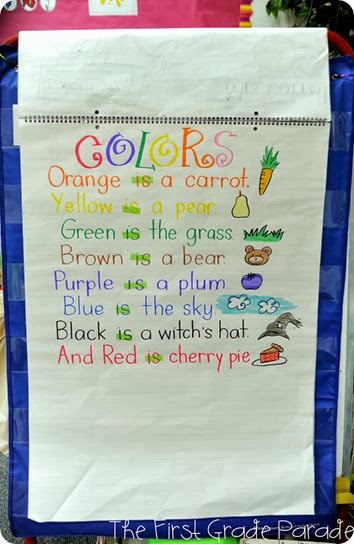 COLORS
Orange is a carrot.
Yellow is a pear.
Green is the grass.
Brown is a bear.
Purple is a plum.
Blue is the sky.
Black is a witch's hat.
And Red is cherry pie.
The First Grade Parade